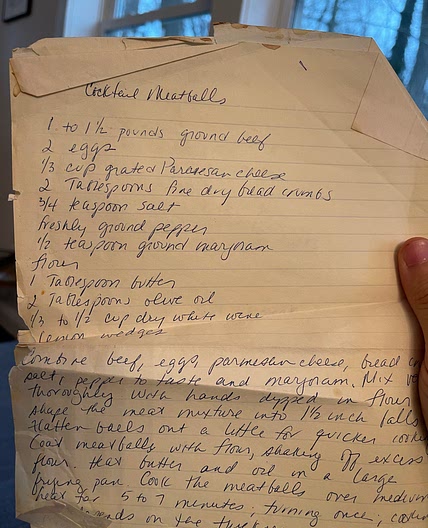 Cocktail Meatballs
1 to 1 1/2 pounds ground beef
2 eggs
1/3 cup grated Parmesan cheese
2 Tablespoons fine dry bread crumbs
3/4 teaspoon salt
freshly ground pepper
1/2 teaspoon ground marjoram
flour
1 Tablespoon butter
2 Tablespoons olive oil
1/3 to 1/2 cup dry white wine
lemon wedges
Combine beef, eggs, parmesan cheese, bread
salt, pepper to taste and marjoram. Mix
thoroughly with hands dipped in flour
shape the meat mixture into 1 1/2 inch balls
Flatten balls out a little for quicker
Coat meatballs with flour, shaking off excess
flour. Heat butter and oil in a large
frying pan. Cook the meatballs over medium
heat for 5 to 7 minutes, turning once,
on the